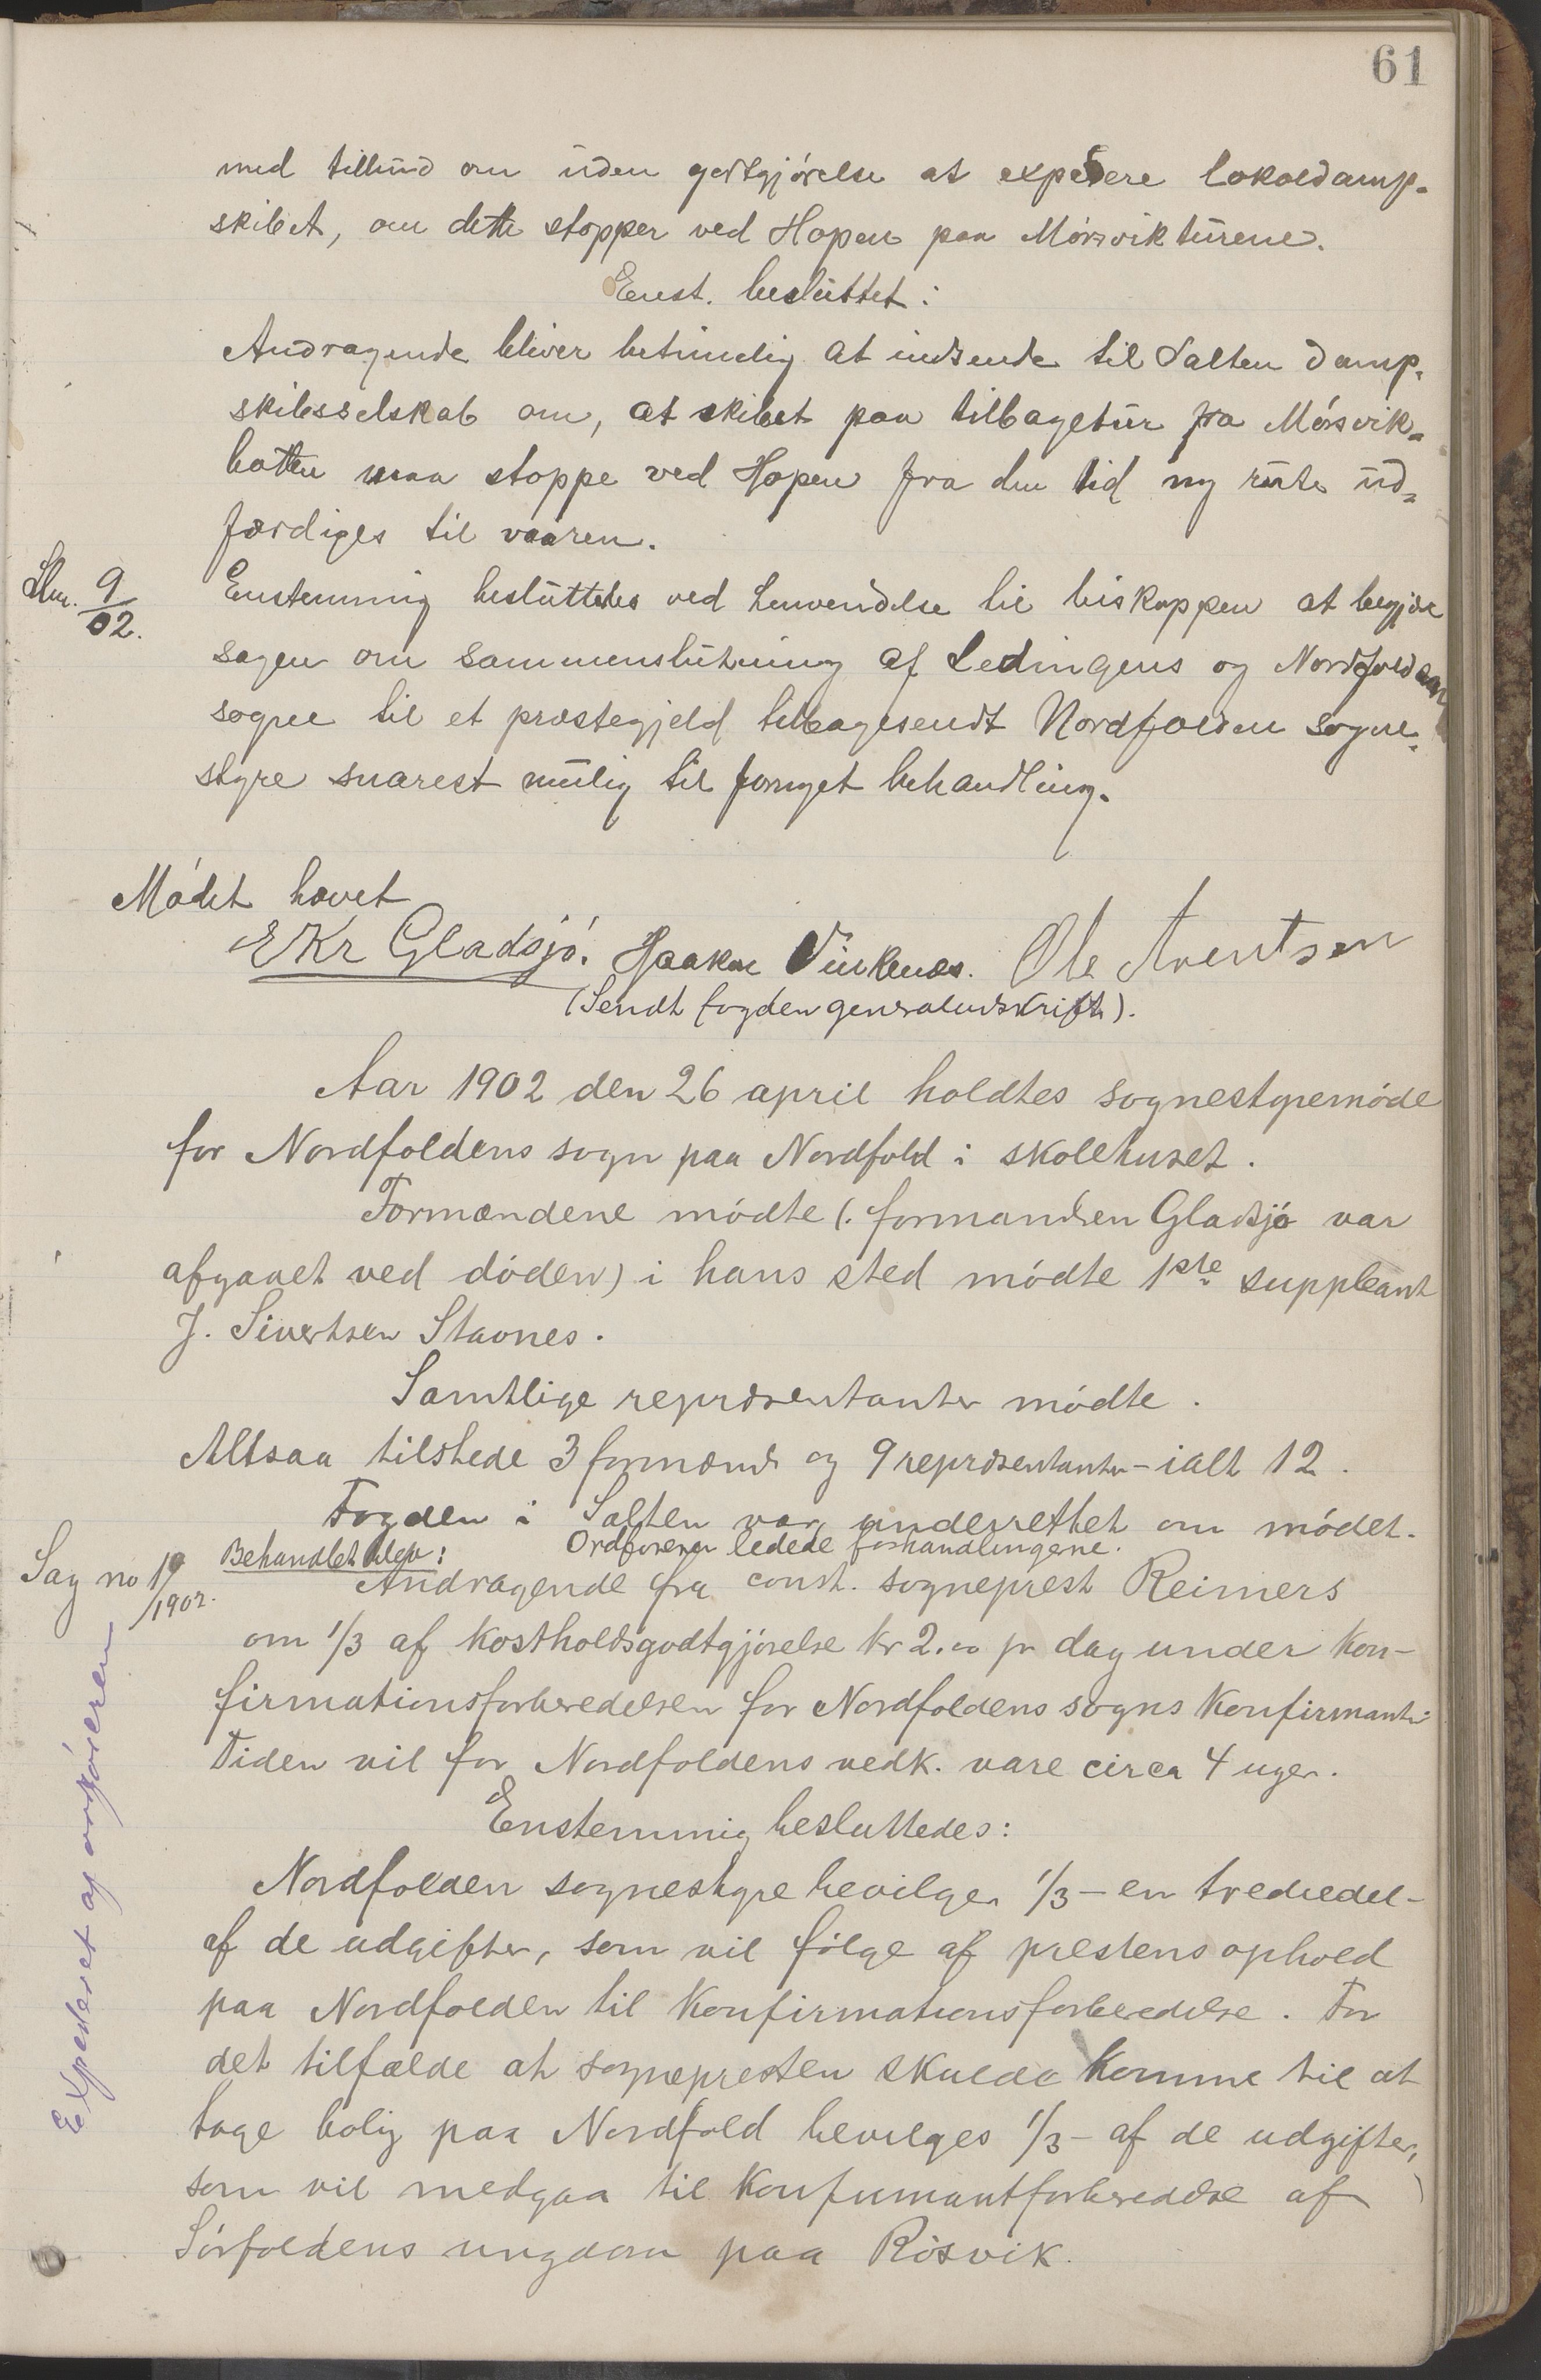 61
med tilbud om uden godtgjørelse at expedere lokaldamp-
skibet, om dette stopper ved Hopen paa Mørsvikturene.
Enst. besluttet:
Andragende bliver betimelig at indsende til Salten damp-
skibsselskab om, at skibet paa tilbagetur fra Mørsvik-
botten maa stoppe ved Hopen fra den tid ny rute ud-
færdiges til vaaren.
9/02.
Enstemmig besluttedes ved henvendelse til biskoppen at begjære
sagen om sammenslutning af Ledingens og Nordfoldens
sogne til et præstegjeld tilbagesendt Nordfolden sogne-
styre snarest mulig til fornyet behandling.
Mødet hævet
EKr Gladsjø. Haakon Vinkenes. Ole Arentsen
(Sendt fogden generaludskrift).
Aar 1902 den 26 april holdtes sognestyremøde
for Nordfoldens sogn paa Nordfold i skolehuset.
Formændene mødte (. formanden Gladsjø var
afgaaet ved døden) i hans sted mødte 1ste suppleant
J. Sivertsen Stavnes.
Samtlige repræsentanter mødte.
Altsaa tilstede 3 formænd og 9 repræsentanter - ialt 12.
Fogden i Salten var underrettet om mødet.
Behandlet blev: Ordføreren ledede forhandlingerne.
Sag no 19/1902.
Andragende fra const. sogneprest Reimers
om 1/3 af kostholdsgodtgjørelse kr 2.00 pr dag under kon-
firmationsforberedelsen for Nordfoldens sogns konfirmanter
Tiden vil for Nordfoldens vedk. vare circa 4 uger.
Enstemmig besluttedes:
Nordfolden sognestyre bevilger 1/3 - en trediedel -
af de udgifter, som vil følge af prestens ophold
paa Nordfolden til konfirmationsforberedelse. For
det tilfælde at sognepresten skulde komme til at
tage bolig paa Nordfold bevilges 1/3 - af de udgifter,
som vil medgaa til konfirmantforberedelse af
Sørfoldens ungdom paa Røsvik.
Expederet af ordføreren